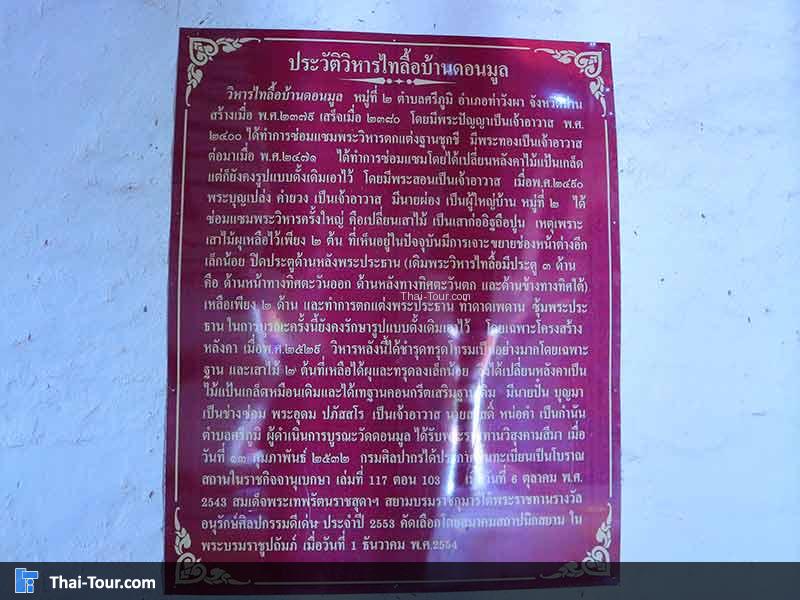 ประวัติวิหารไทลื้อบ้านดอนมูล
วิหารไทลื้อบ้านดอนมูล หมู่ที่ ๒ ตำบลศรีภูมิ อำเภอท่าวังผา จังหวัดน่าน
สร้างเมื่อ พ.ศ.๒๓๗๙ เสร็จเมื่อ ๒๓๘๐ โดยมีพระปัญญาเป็นเจ้าอาวาส พ.ศ.
๒๔๐๐ ได้ทำการซ่อมแซมพระวิหารตกแต่งฐานชุกชี มีพระทองเป็นเจ้าอาวาส
ต่อมาเมื่อ พ.ศ.๒๔๗๑ ได้ทำการซ่อมแซมโดยได้เปลี่ยนหลังคาไม้แป้นเกล็ด
แต่ก็ยังคงรูปแบบดั้งเดิมเอาไว้ โดยมีพระสอนเป็นเจ้าอาวาส เมื่อพ.ศ.๒๔๙๐
พระบุญเปล่ง คำยวง เป็นเจ้าอาวาส มีนายผ่อง เป็นผู้ใหญ่บ้าน หมู่ที่ ๒ ได้
ซ่อมแซมพระวิหารครั้งใหญ่ คือเปลี่ยนเสาไม้ เป็นเสาก่ออิฐถือปูน เหตุเพราะ
เสาไม้ผุเหลือไว้เพียง ๒ ต้น ที่เห็นอยู่ในปัจจุบันมีการเจาะขยายช่องหน้าต่างอีก
เล็กน้อย ปิดประตูด้านหลังพระประธาน (เดิมพระวิหารไทลื้อมีประตู ๓ ด้าน
คือ ด้านหน้าทางทิศตะวันออก ด้านหลังทางทิศตะวันตก และด้านข้างทางทิศใต้)
เหลือเพียง ๒ ด้าน และทำการตกแต่งพระประธาน ทาดาดเพดาน ซุ้มพระประ
ธาน ในการบูรณะครั้งนี้ยังคงรักษารูปแบบดั้งเดิมเอาไว้ โดยเฉพาะโครงสร้าง
หลังคา เมื่อพ.ศ.๒๕๒๙ วิหารหลังนี้ได้ชำรุดทรุดโทรมเป็นอย่างมากโดยเฉพาะ
ฐาน และเสาไม้ ๒ ต้นที่เหลือได้ผุและทรุดลงเล็กน้อย จึงได้เปลี่ยนหลังคาเป็น
ไม้แป้นเกล็ดเหมือนเดิมและได้เทฐานคอนกรีตเสริมฐานเดิม มีนายปั๋น บุญมา
เป็นช่างซ่อม พระอุดม ปภัสสโร เป็นเจ้าอาวาส นายสวัสดิ์ หน่อคำ เป็นกำนัน
ตำบลศรีภูมิ ผู้ดำเนินการบูรณะวัดดอนมูล ได้รับพระราชทานวิสุงคามสีมา เมื่อ
วันที่ ๑๓ กุมภาพันธ์ ๒๕๓๒ กรมศิลปากรได้ประกาศขึ้นทะเบียนเป็นโบราณ
สถานในราชกิจจานุเบกษา เล่มที่ 117 ตอน 103 เมื่อวันที่ 6 ตุลาคม พ.ศ.
2543 สมเด็จพระเทพรัตนราชสุดาฯ สยามบรมราชกุมารีได้พระราชทานรางวัล
อนุรักษ์ศิลปกรรมดีเด่น ประจำปี 2553 คัดเลือกโดยสมาคมสถาปนิกสยาม ใน
พระบรมราชูปถัมภ์ เมื่อวันที่ 1 ธันวาคม พ.ศ.2554
Thai-Tour.com
Thai-Tour.com